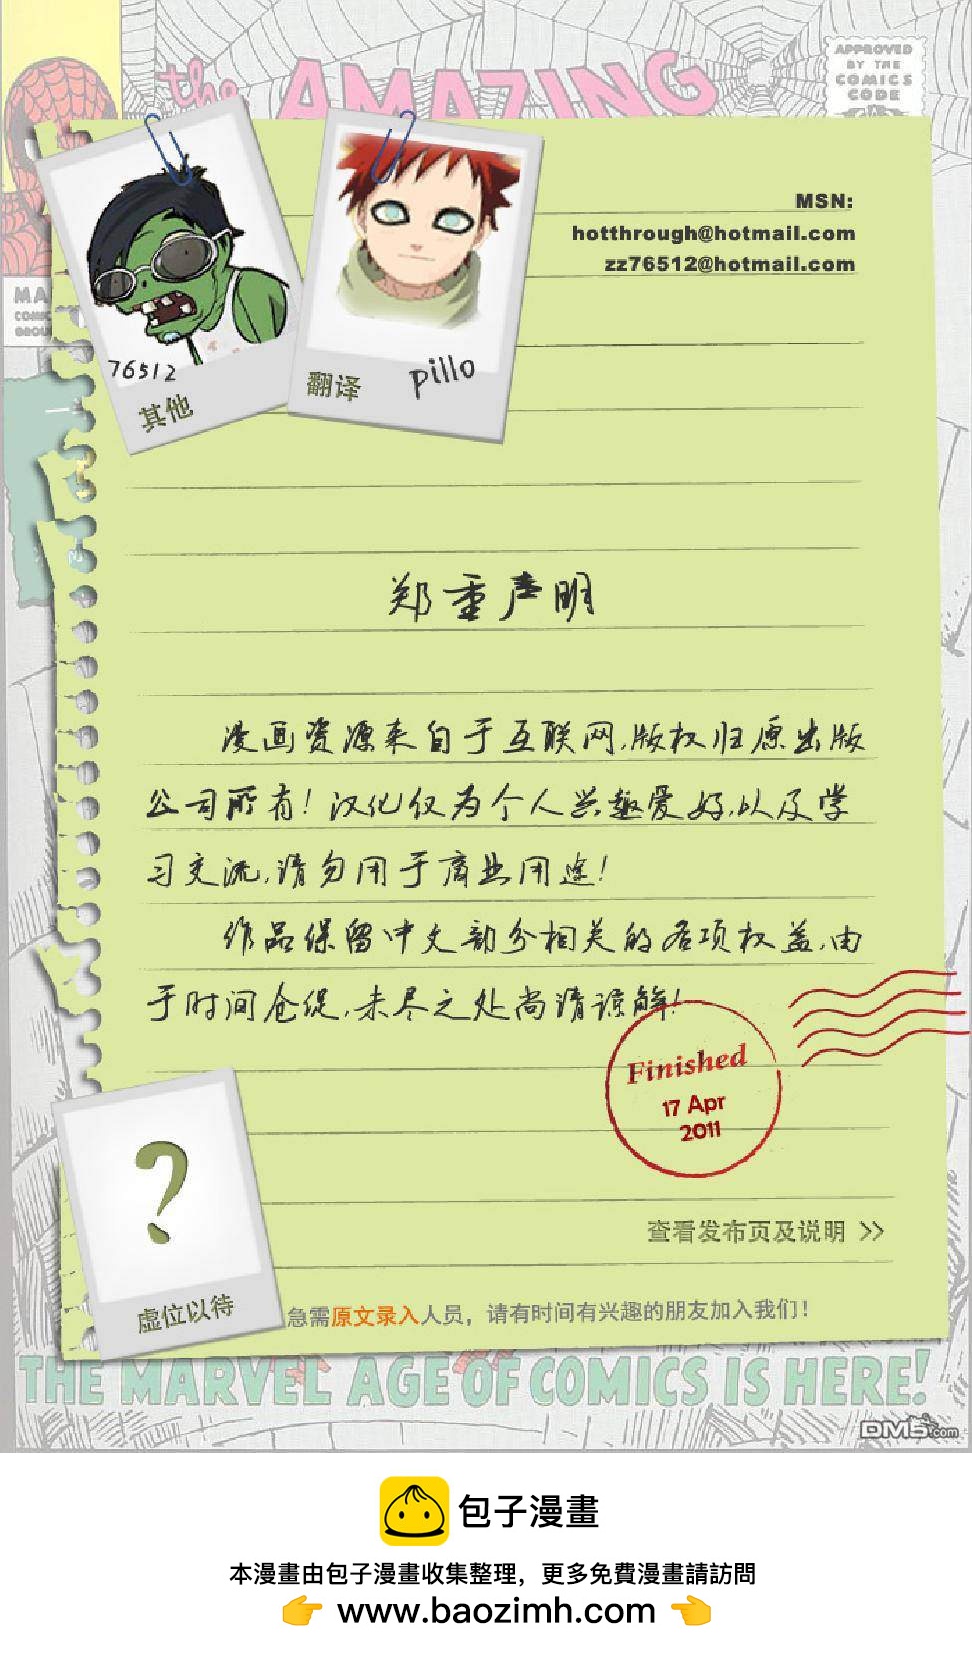 the AMAZING
APPROVED
BY THE
COMICS
CODE
MSN:
hotthrough@hotmail.com
zz76512@hotmail.com
76512
其他
翻译 pillo
郑重声明
漫画资源来自于互联网,版权归原出版
公司所有!汉化仅为个人兴趣爱好,以及学
习交流,请勿用于商业用途!
作品保留中文部分相关的各项权益,由
于时间仓促,未尽之处尚请谅解!
Finished
17 Apr
2011
查看发布页及说明 >>
?
虚位以待
急需原文录入人员，请有时间有兴趣的朋友加入我们！
THE MARVEL AGE OF COMICS IS HERE!
DM5.com
包子漫畫
本漫畫由包子漫畫收集整理，更多免費漫畫請訪問
👉 www.baozimh.com 👈